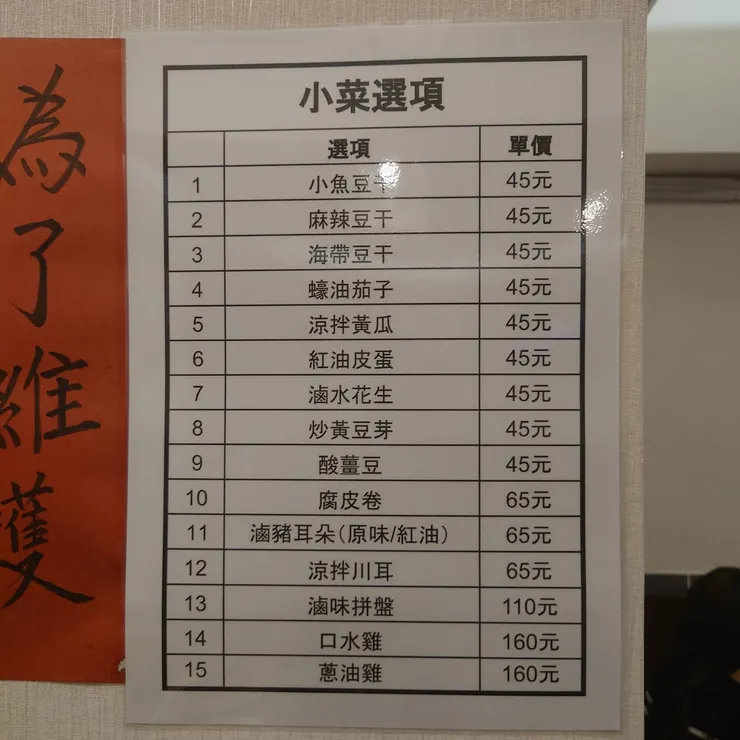 為了維護
小菜選項
選項 單價
1 小魚豆干 45元
2 麻辣豆干 45元
3 海帶豆干 45元
4 蠔油茄子 45元
5 涼拌黃瓜 45元
6 紅油皮蛋 45元
7 滷水花生 45元
8 炒黃豆芽 45元
9 酸薑豆 45元
10 腐皮卷 65元
11 滷豬耳朵(原味/紅油) 65元
12 涼拌川耳 65元
13 滷味拼盤 110元
14 口水雞 160元
15 蔥油雞 160元